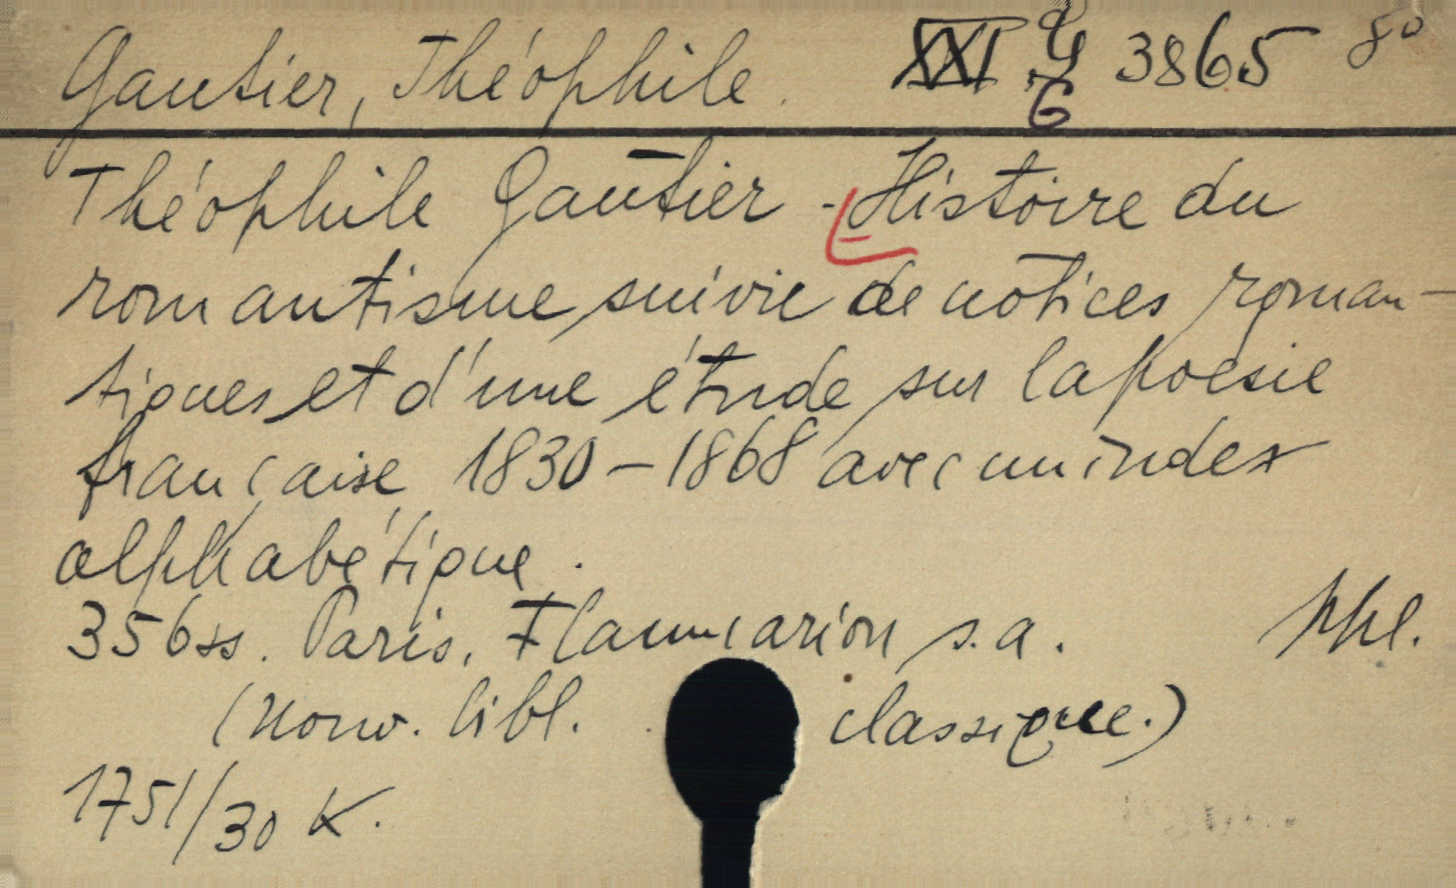 Gautier, Théophile. XXI G 3865 8°
Théophile Gautier - Histoire du
romantisme suivie de notices roman-
tiques et d'une étude sur la poésie
française 1830-1868 avec un index
alphabétique.
356 ss. Paris, Flammarion s.a.
(Nouv. bibl. classique.)
1751/30 K.